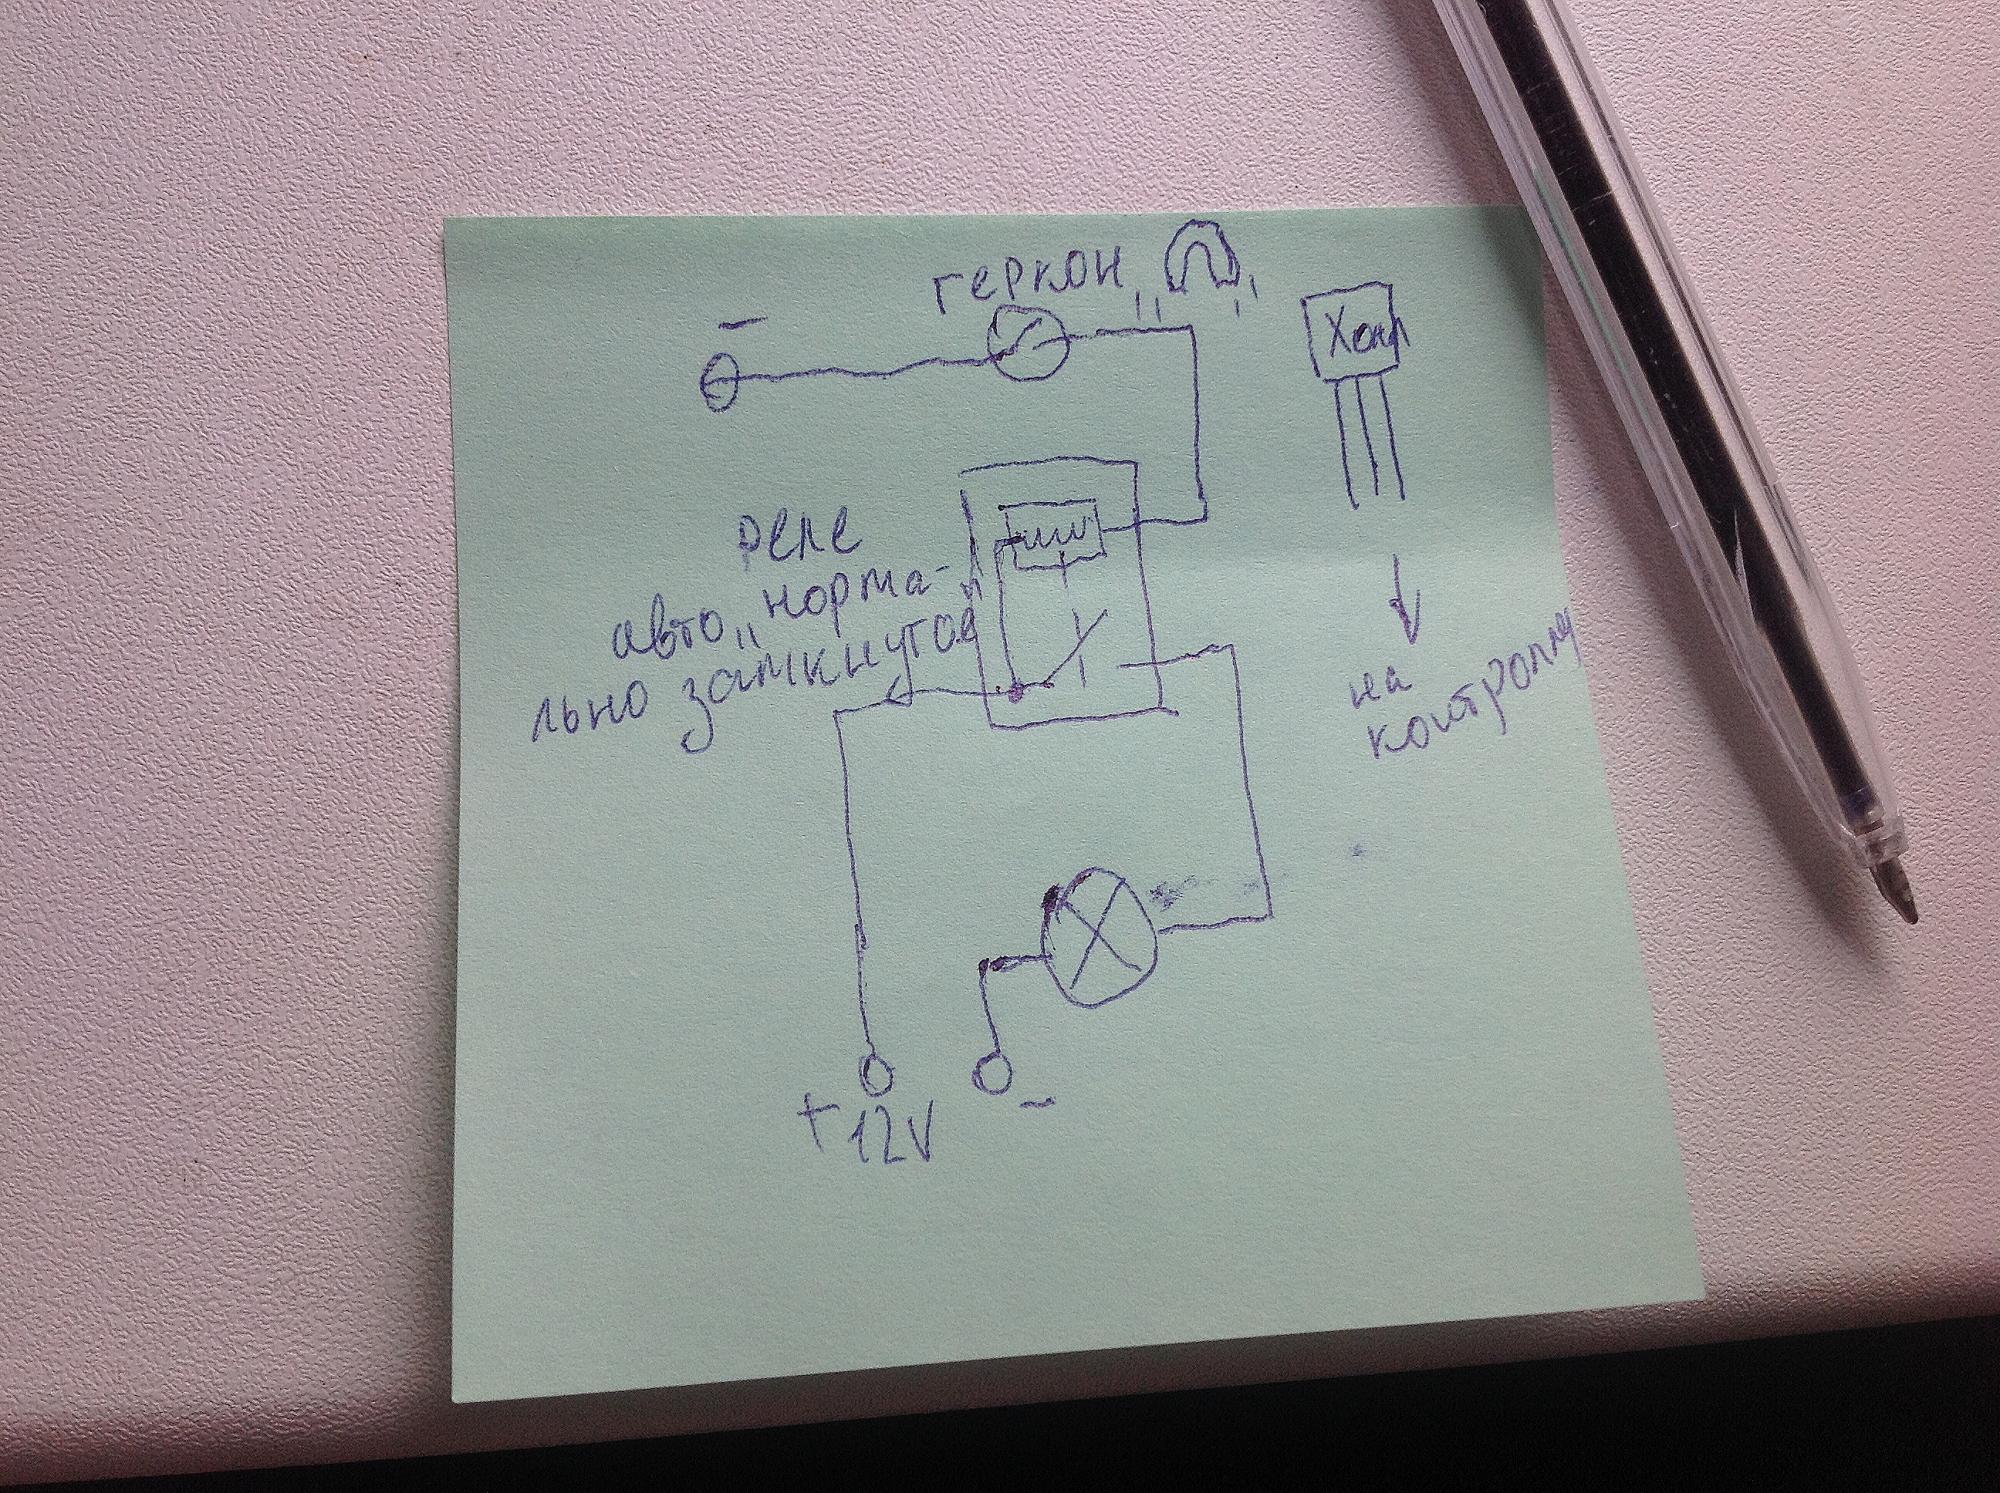 геркон „ "
−
Холл
реле
авто „норма-
льно замкнутое"
на
контроллу
+12V
−